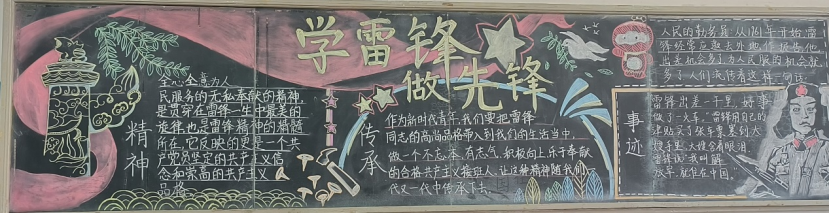 学雷锋
做先锋
精神
全心全意为人
民服务的无私奉献的精神,
是贯穿在雷锋一生中最美的
旋律,也是雷锋精神的精髓
所在,它反映的更是一个共
产党员坚定的共产主义信
念和崇高的共产主义
品格
传承
作为新时代青年,我们要把雷锋
同志的高尚品格带入到我们的生活当中,
做一个不忘本,有志气,积极向上乐于奉献
的合格共产主义接班人,让这种精神随我们一
代又一代中传承下去。
人民的勤务员 从1961年开始,雷
锋经常应邀去外地作报告,他
出差机会多了,为人民服的机会就
多了,人们流传着这样一句话:
事迹
雷锋出差一千里,好事
做了一火车。"雷锋用自己的
津贴买了张车票
手里,大嫂含着眼泪
雷锋说"我叫解
放军,就住在中国。"